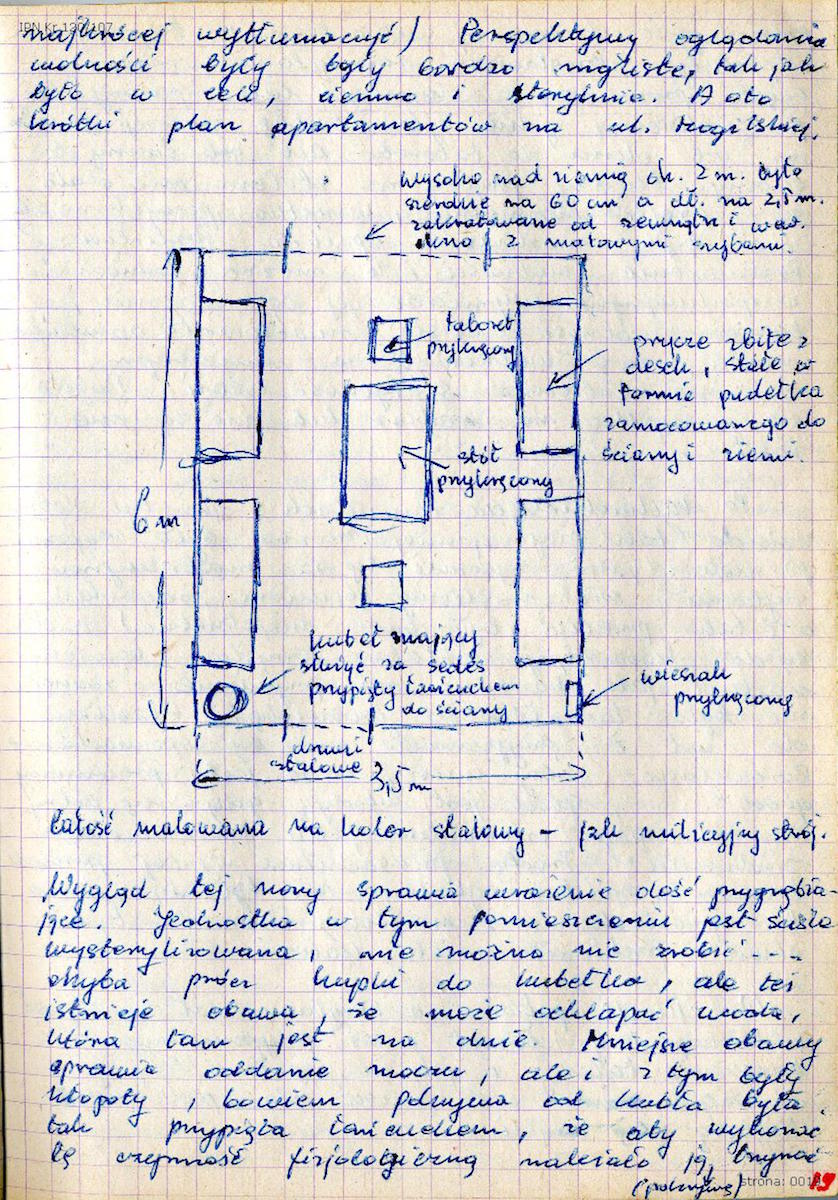 IPN Kr 120/107
najkrócej wytłumaczyć) Perspektywy oglądania
wolności były były bardzo mgliste, tak jak
było w celi, ciemno i sterylnie. A oto
krótki plan apartamentów na ul. Mogilskiej.
wysoko nad ziemią ok. 2 m. było
szerokie na 60 cm a dł. na 2,5 m.
zakratowane od zewnątrz i wew.
okno z matowymi szybami.
taboret
przykręcony
prycze zbite z
desek, stałe w
formie pudełka
zamocowanego do
ściany i ziemi.
stół
przykręcony
6 m
kubeł mający
służyć za sedes
przypięty łańcuchem
do ściany
wieszak
przykręcony
drzwi
stalowe
3,5 m
Całość malowana na kolor stalowy – jak milicyjny strój.
Wygląd tej nory sprawia wrażenie dość przygnębia-
jące. Jednostka w tym pomieszczeniu jest
wysterylizowana, nie można nic zrobić ----
chyba prócz kupki do kubełka, ale też
istnieje obawa, że może ochlapać woda,
która tam jest na dnie. Mniejsze obawy
sprawia oddanie moczu, ale i z tym były
kłopoty, bowiem pokrywa od kubła była
tak przypięta łańcuchem, że aby wykonać
tę czynność fizjologiczną należało ją trzymać
(pokrywę)
strona: 001
19